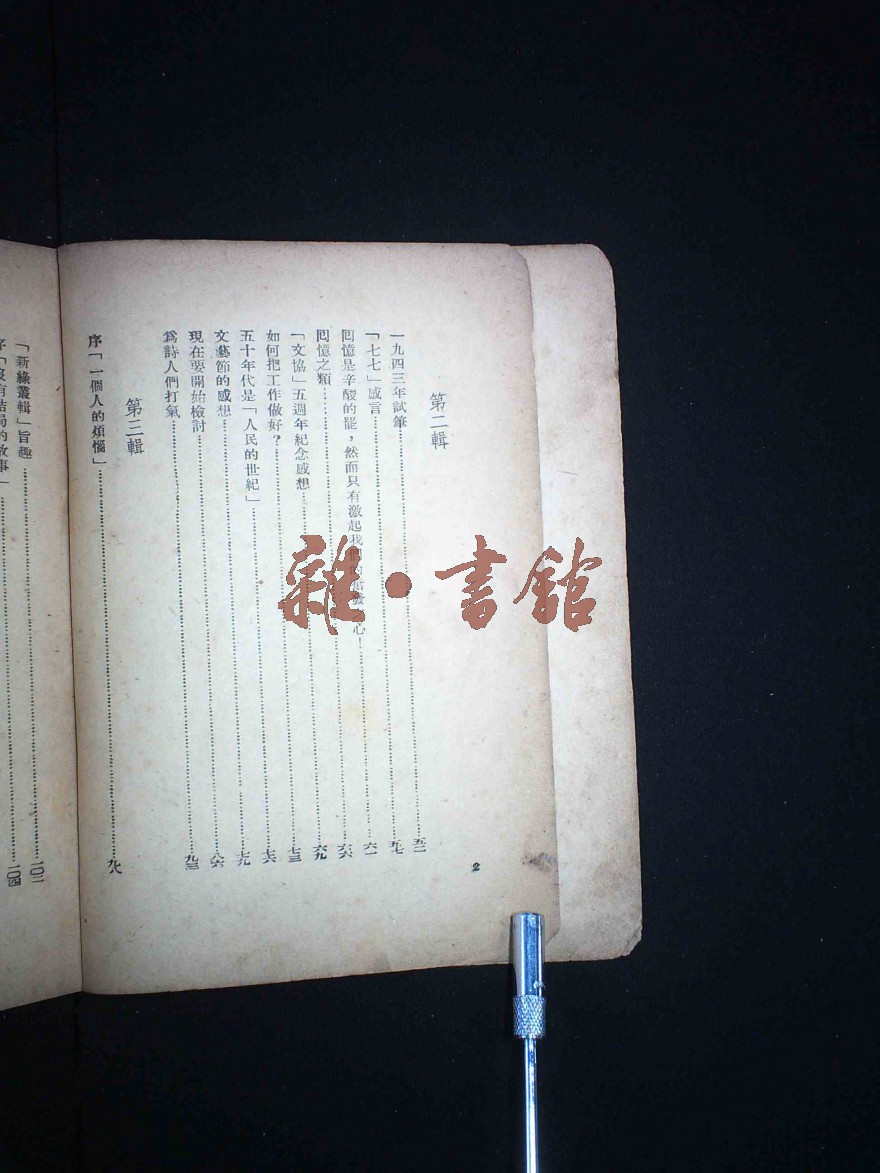 2
第二輯
一九四三年試筆……五二
「七七」感言……五七
囘憶是辛酸的罷，然而只有激起我們的奮發之心！……六一
囘憶之類……六六
「文協」五週年紀念感想……六九
如何把工作做好？……七三
五十年代是「人民的世紀」……七六
文藝節的感想……七九
現在要開始檢討……八六
爲詩人們打氣……九三
第三輯
序「一個人的煩惱」……九八
「新綠叢輯」旨趣……一〇二
序「沒有結局的故事」……一〇四
雜·書館